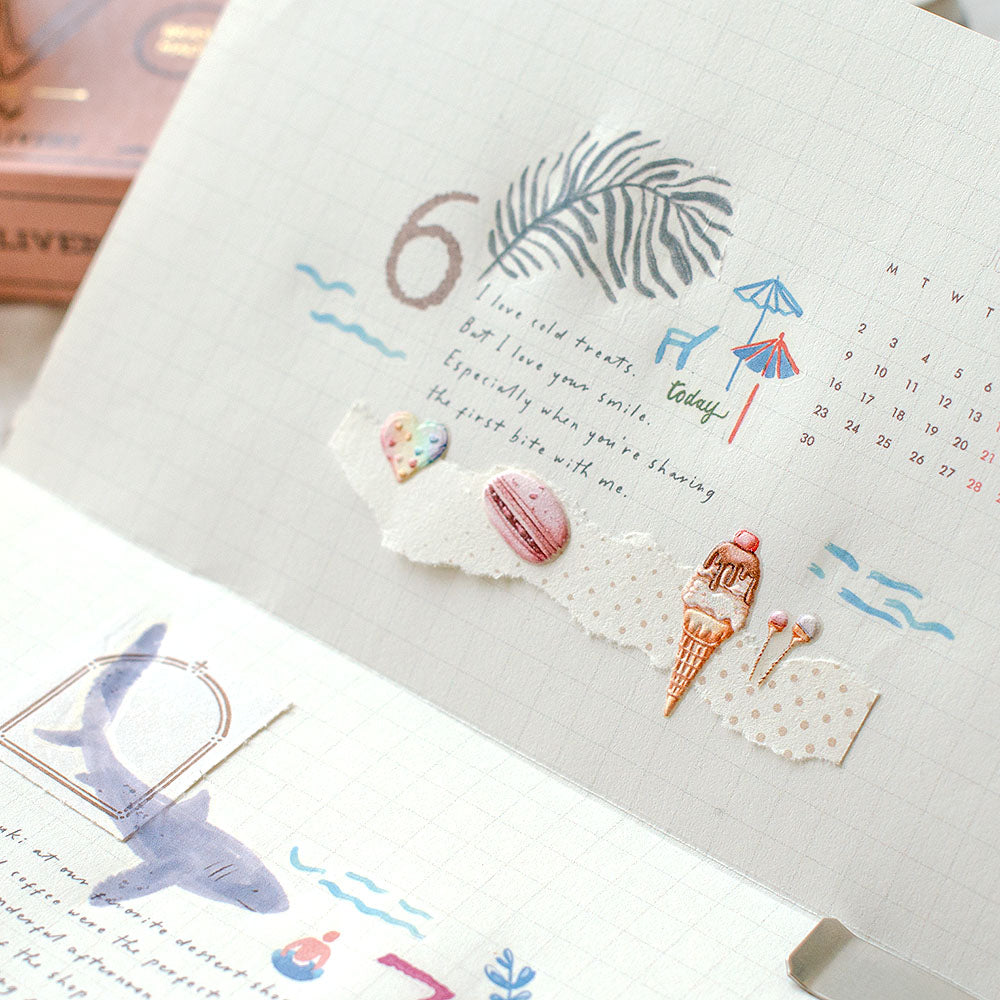 6
I love cold treats.
But I love your smile.
Especially when you're sharing
the first bite with me.
today
M T W T
2 3 4 5 6
9 10 11 12 13
16 17 18 19 20 21
23 24 25 26 27 28
30
uki at our favorite dessert sho
coffee were the perfect
nderful afternoon
the shop
7
LIVE